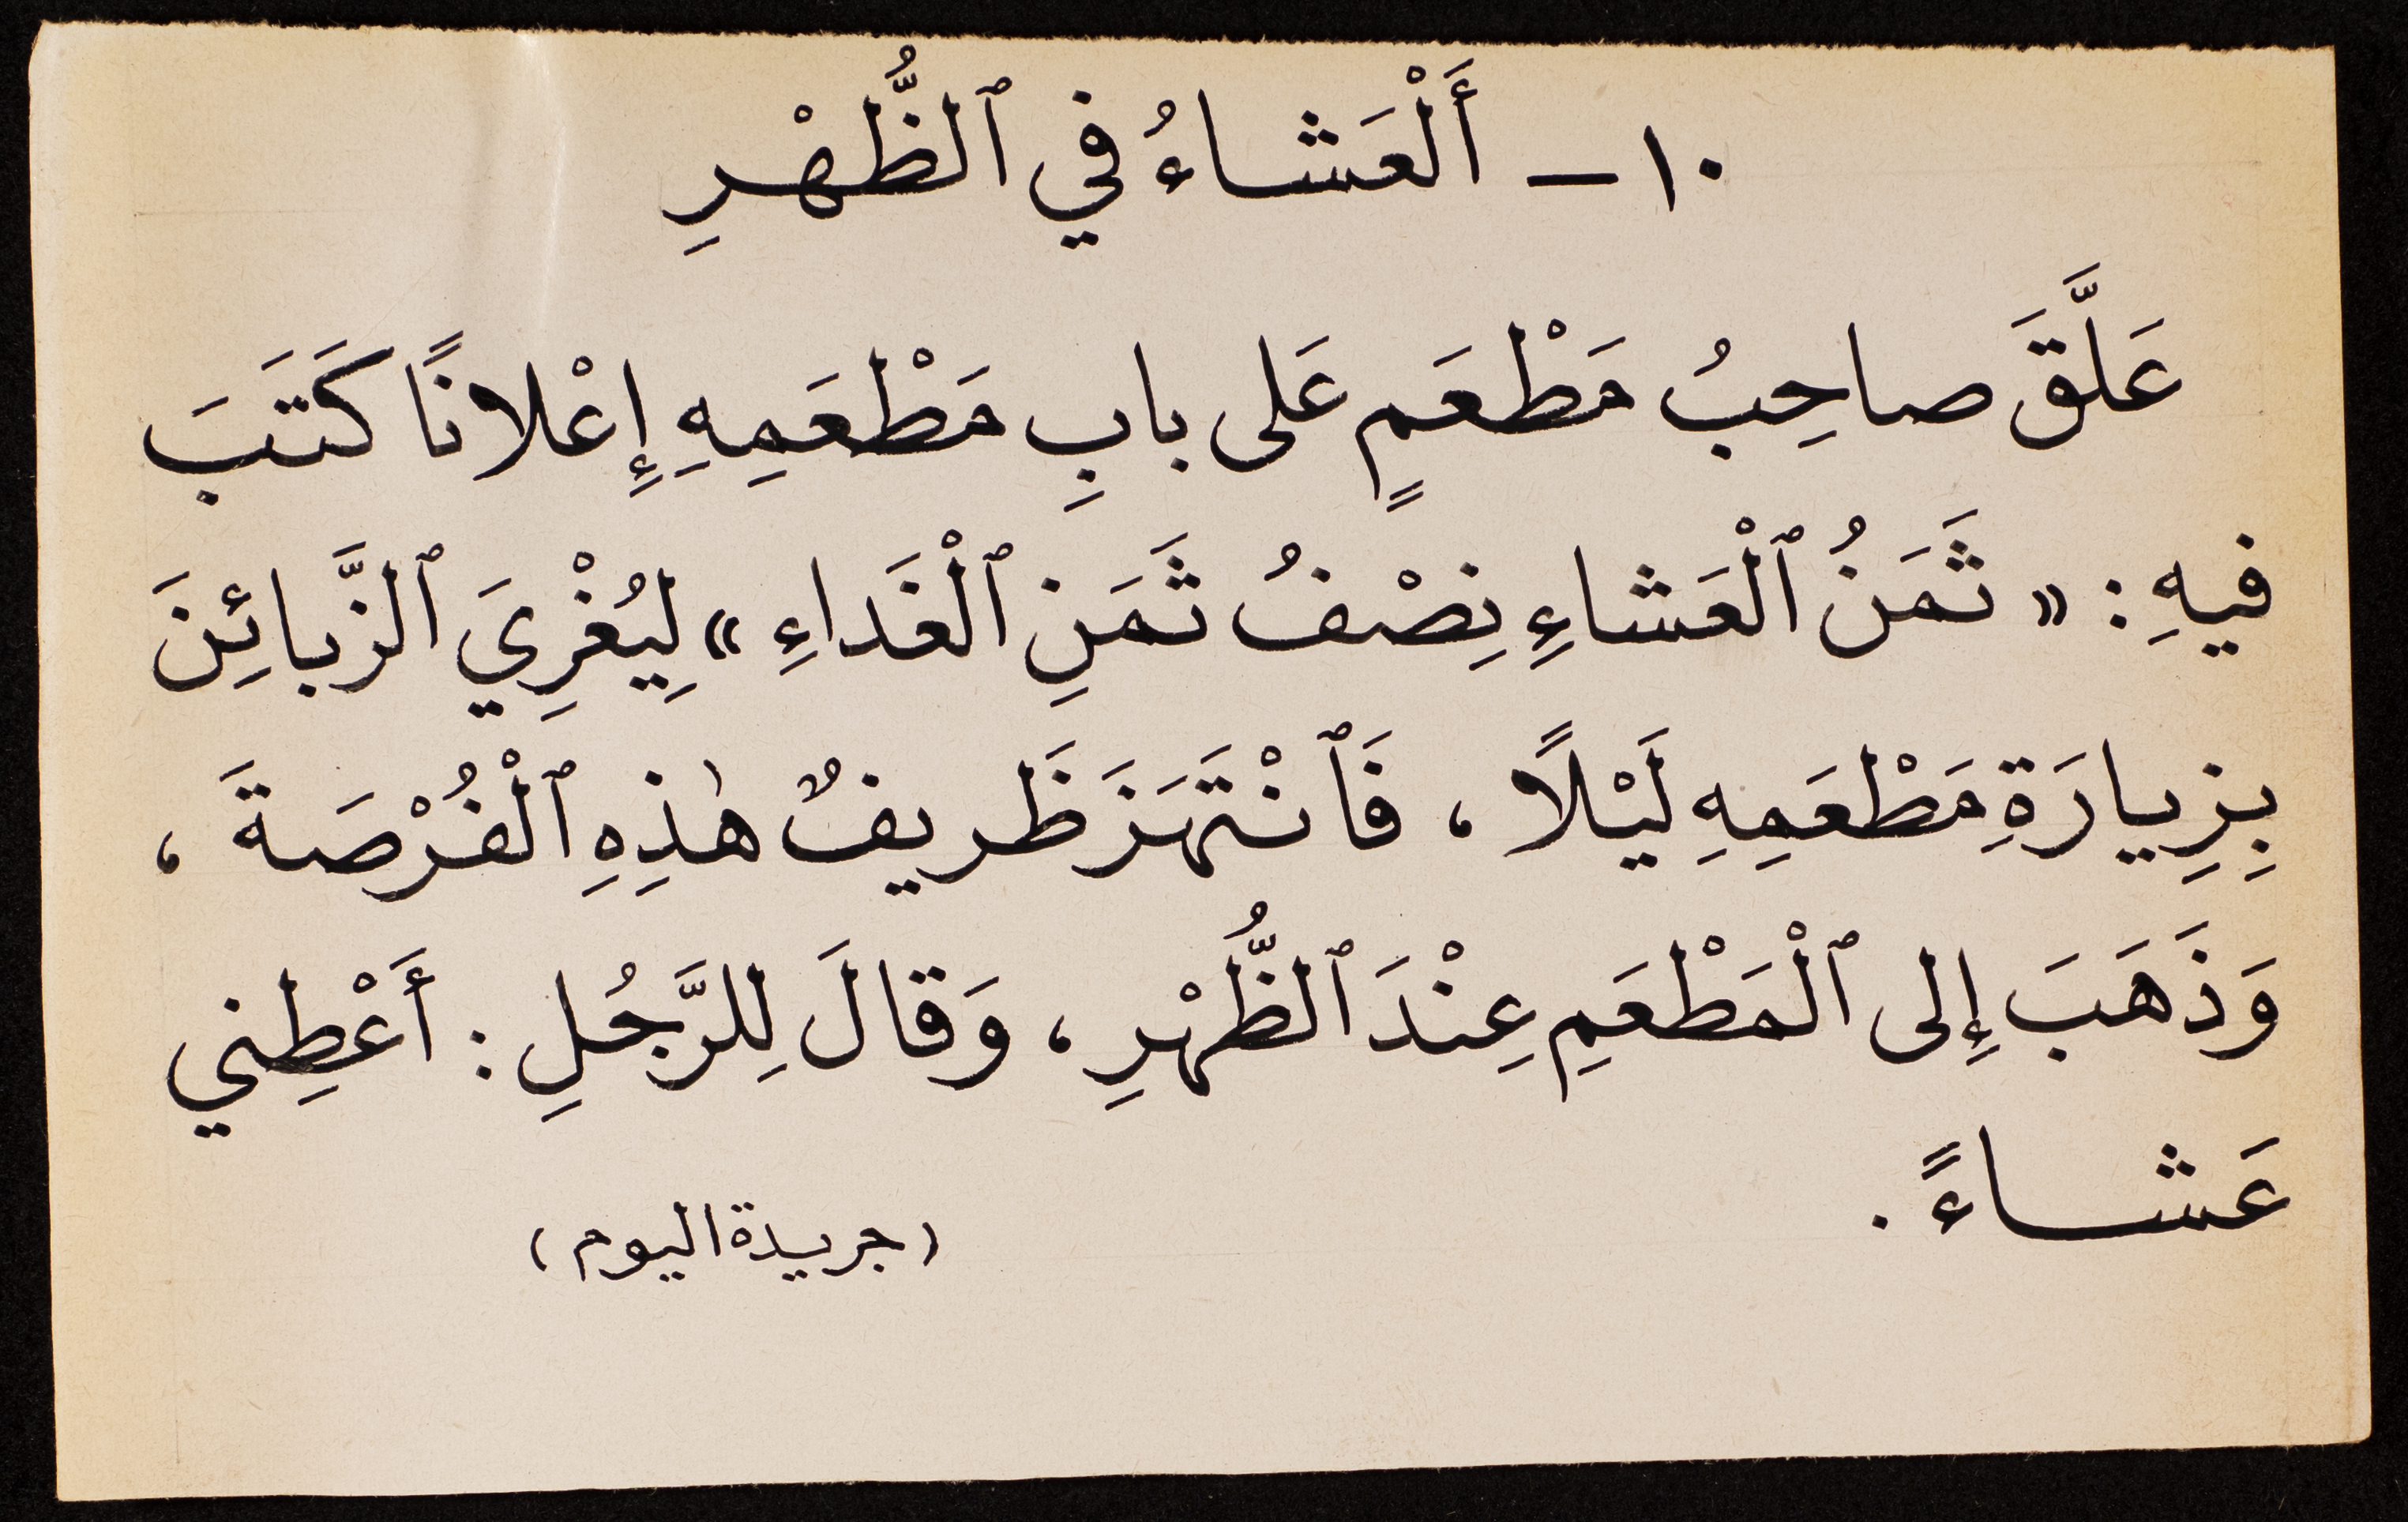 ١٠ ــ أَلْعَشاءُ في ٱلظُّهْرِ
عَلَّقَ صاحِبُ مَطْعَمٍ عَلى بابِ مَطْعَمِهِ إِعْلانًا كَتَبَ
فيهِ : « ثَمَنُ ٱلْعَشاءِ نِصْفُ ثَمَنِ ٱلْغَداءِ » لِيُغْرِيَ ٱلزَّبائِنَ
بِزِيارَةِ مَطْعَمِهِ لَيْلًا ، فَٱنْتَهَزَ ظَريفٌ هٰذِهِ ٱلْفُرْصَةَ ،
وَذَهَبَ إِلى ٱلْمَطْعَمِ عِنْدَ ٱلظُّهْرِ ، وَقالَ لِلرَّجُلِ : أَعْطِني
عَشاءً .
(جريدة اليوم)